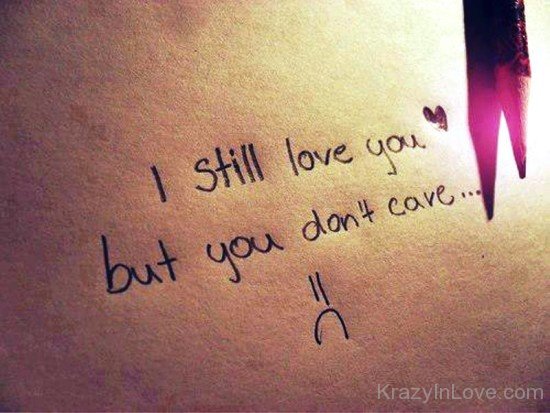 I still love you ♥
but you don't care...
=(
KrazyInLove.com